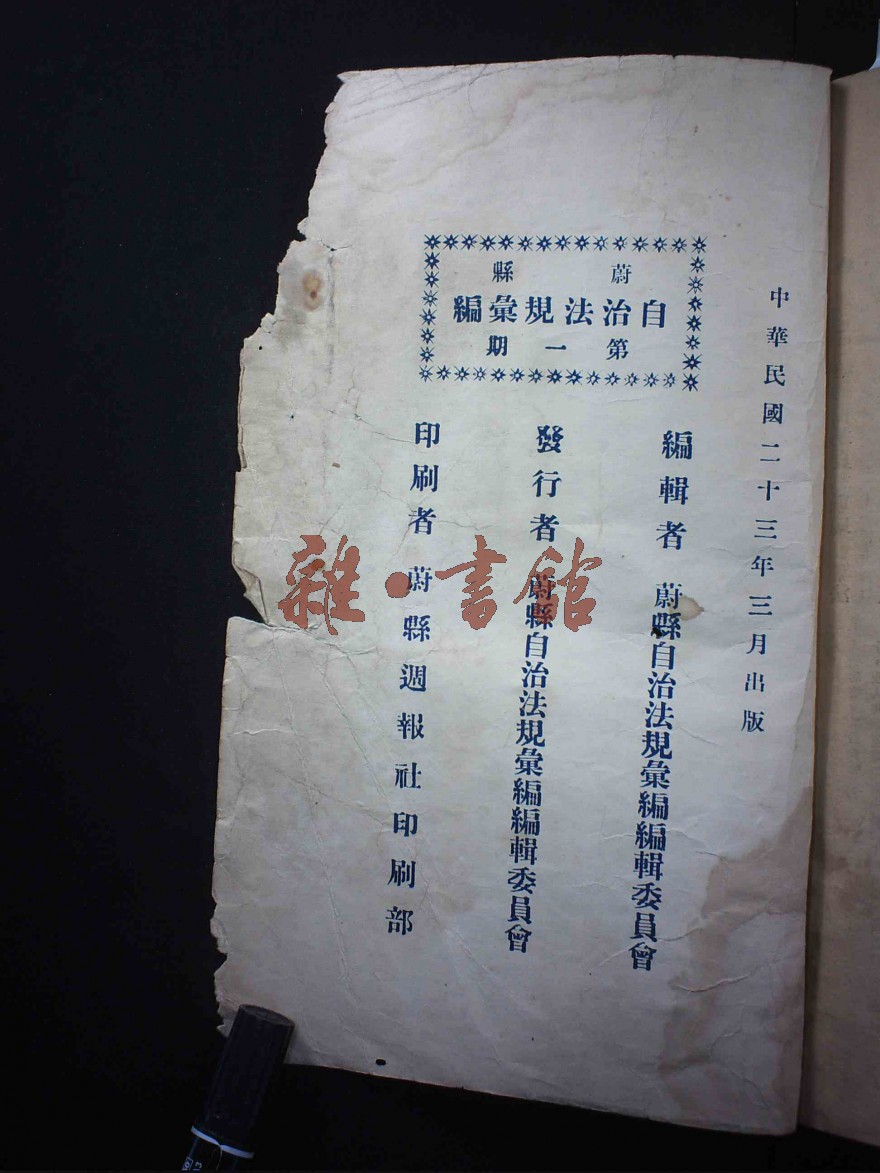 中華民國二十三年三月出版
蔚縣
自治法規彙編
第一期
編輯者 蔚縣自治法規彙編編輯委員會
發行者 蔚縣自治法規彙編編輯委員會
印刷者 蔚縣週報社印刷部
雜·書館